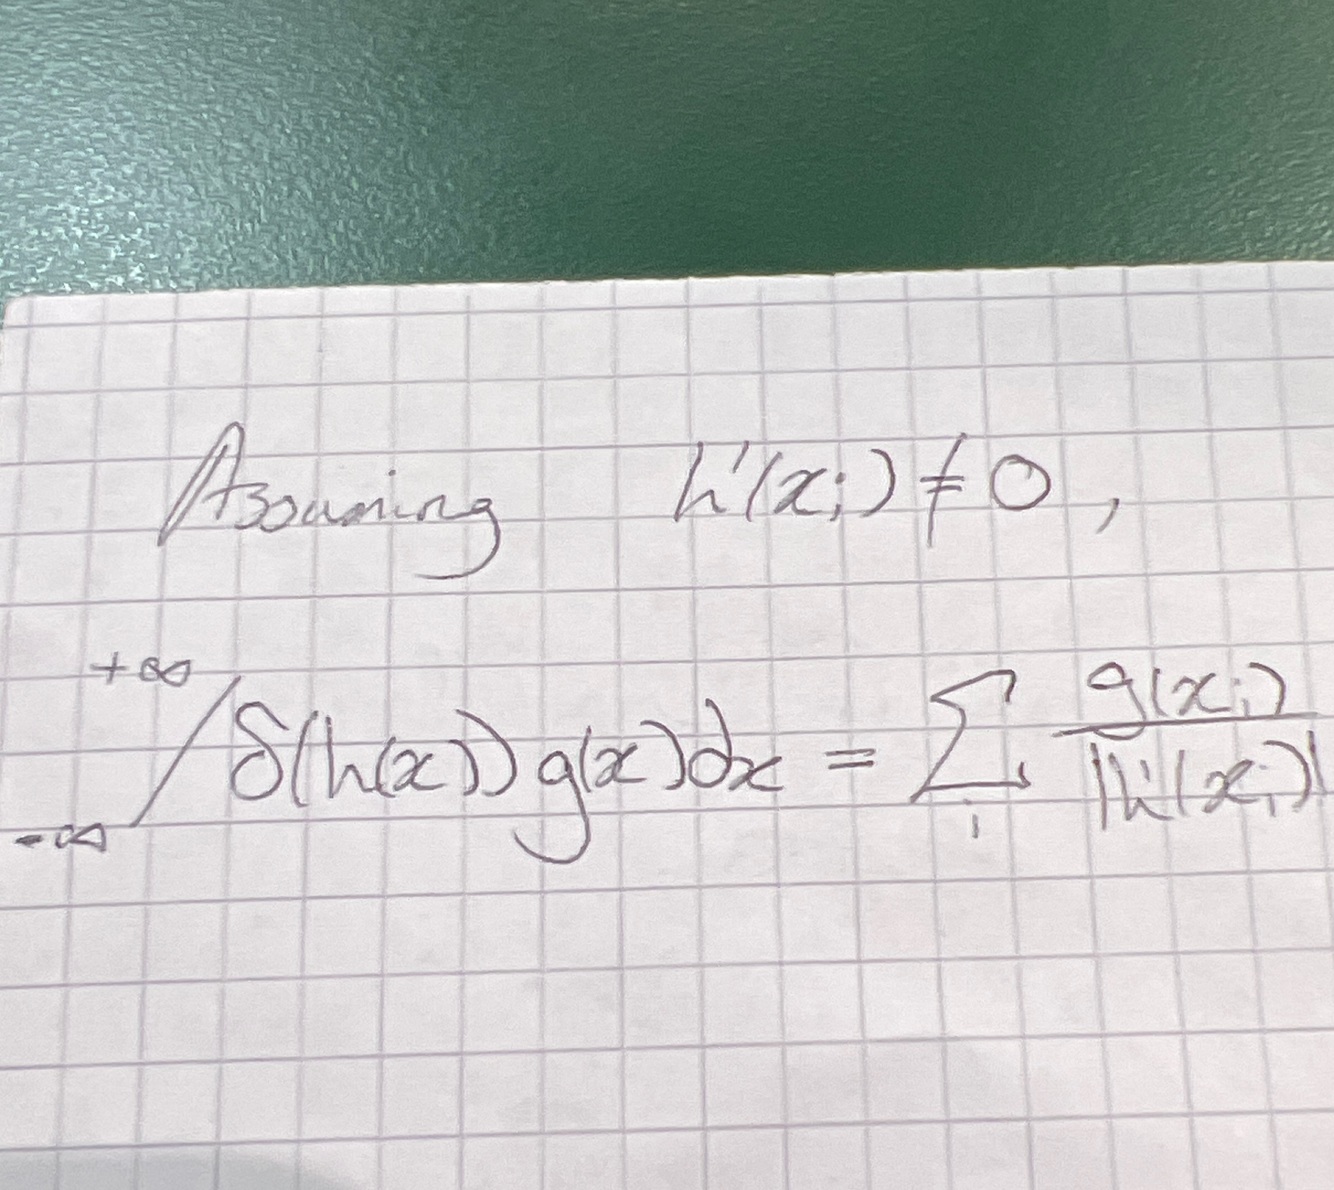 Assuming h'(xᵢ) ≠ 0,
∫_{-∞}^{+∞} δ(h(x)) g(x) dx = ∑_i g(xᵢ)/|h'(xᵢ)|